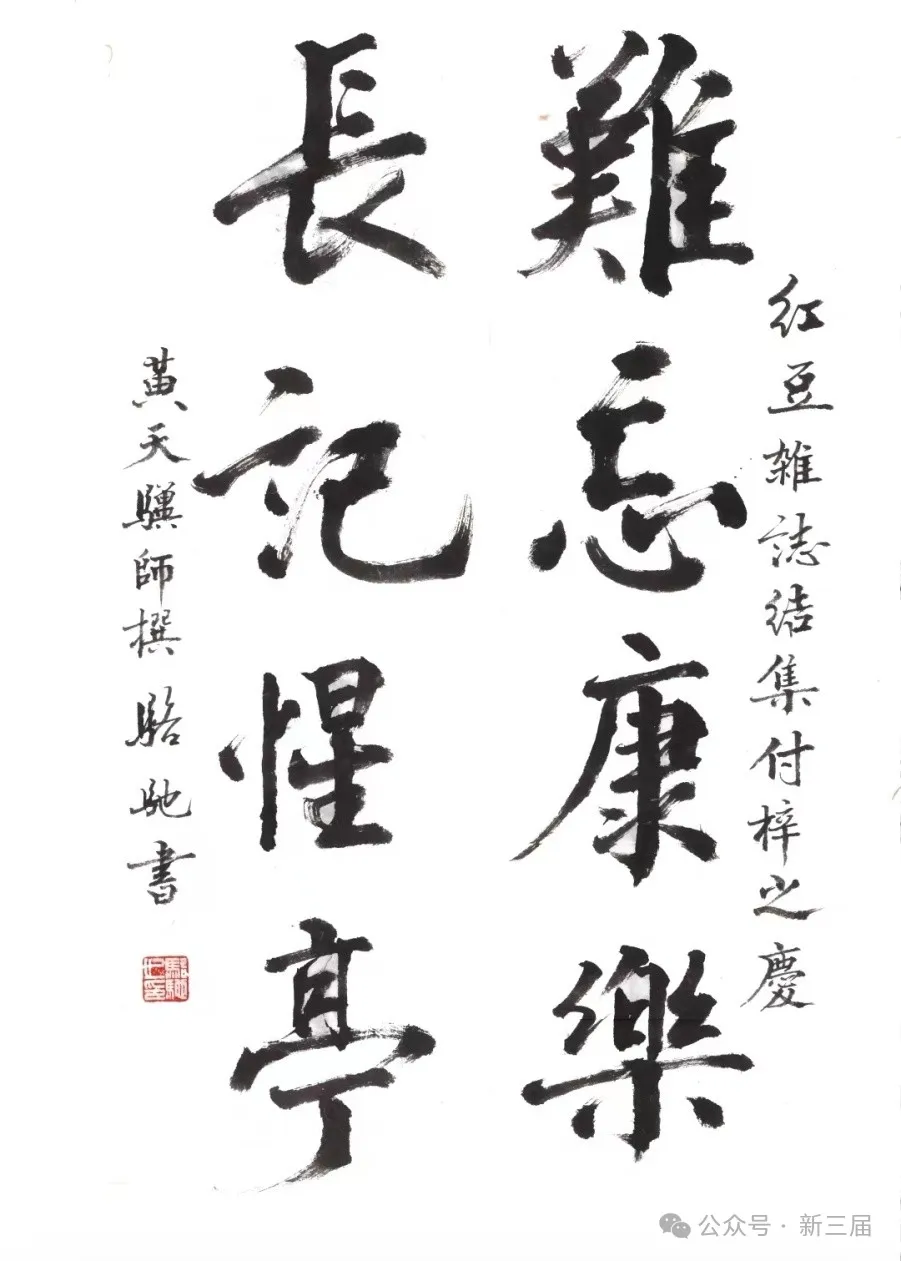 紅豆雜誌結集付梓之慶
難忘康樂
長記惺亭
黃天驥師撰 駱馳書
公众号·新三届